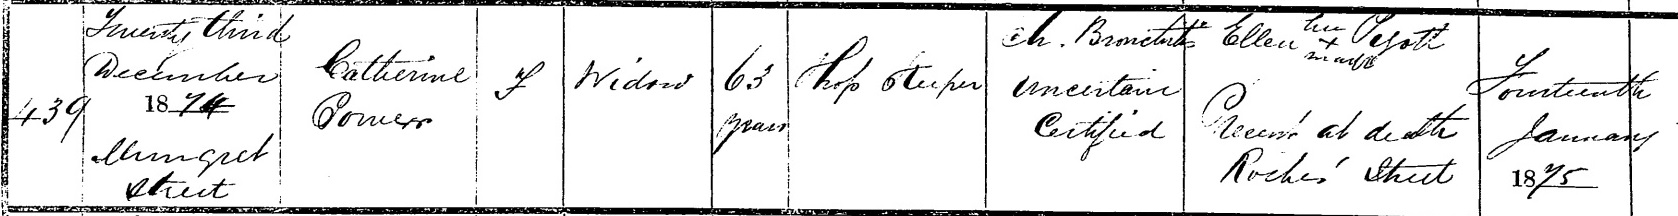 439
Twenty third
December
1874
Mungret
Street
Catherine
Power
F
Widow
63
years
Shop Keeper
Ch. Bronchitis
Uncertain
Certified
Ellen her
x
mark
Present at death
Roches' Street
Fourteenth
January
1875